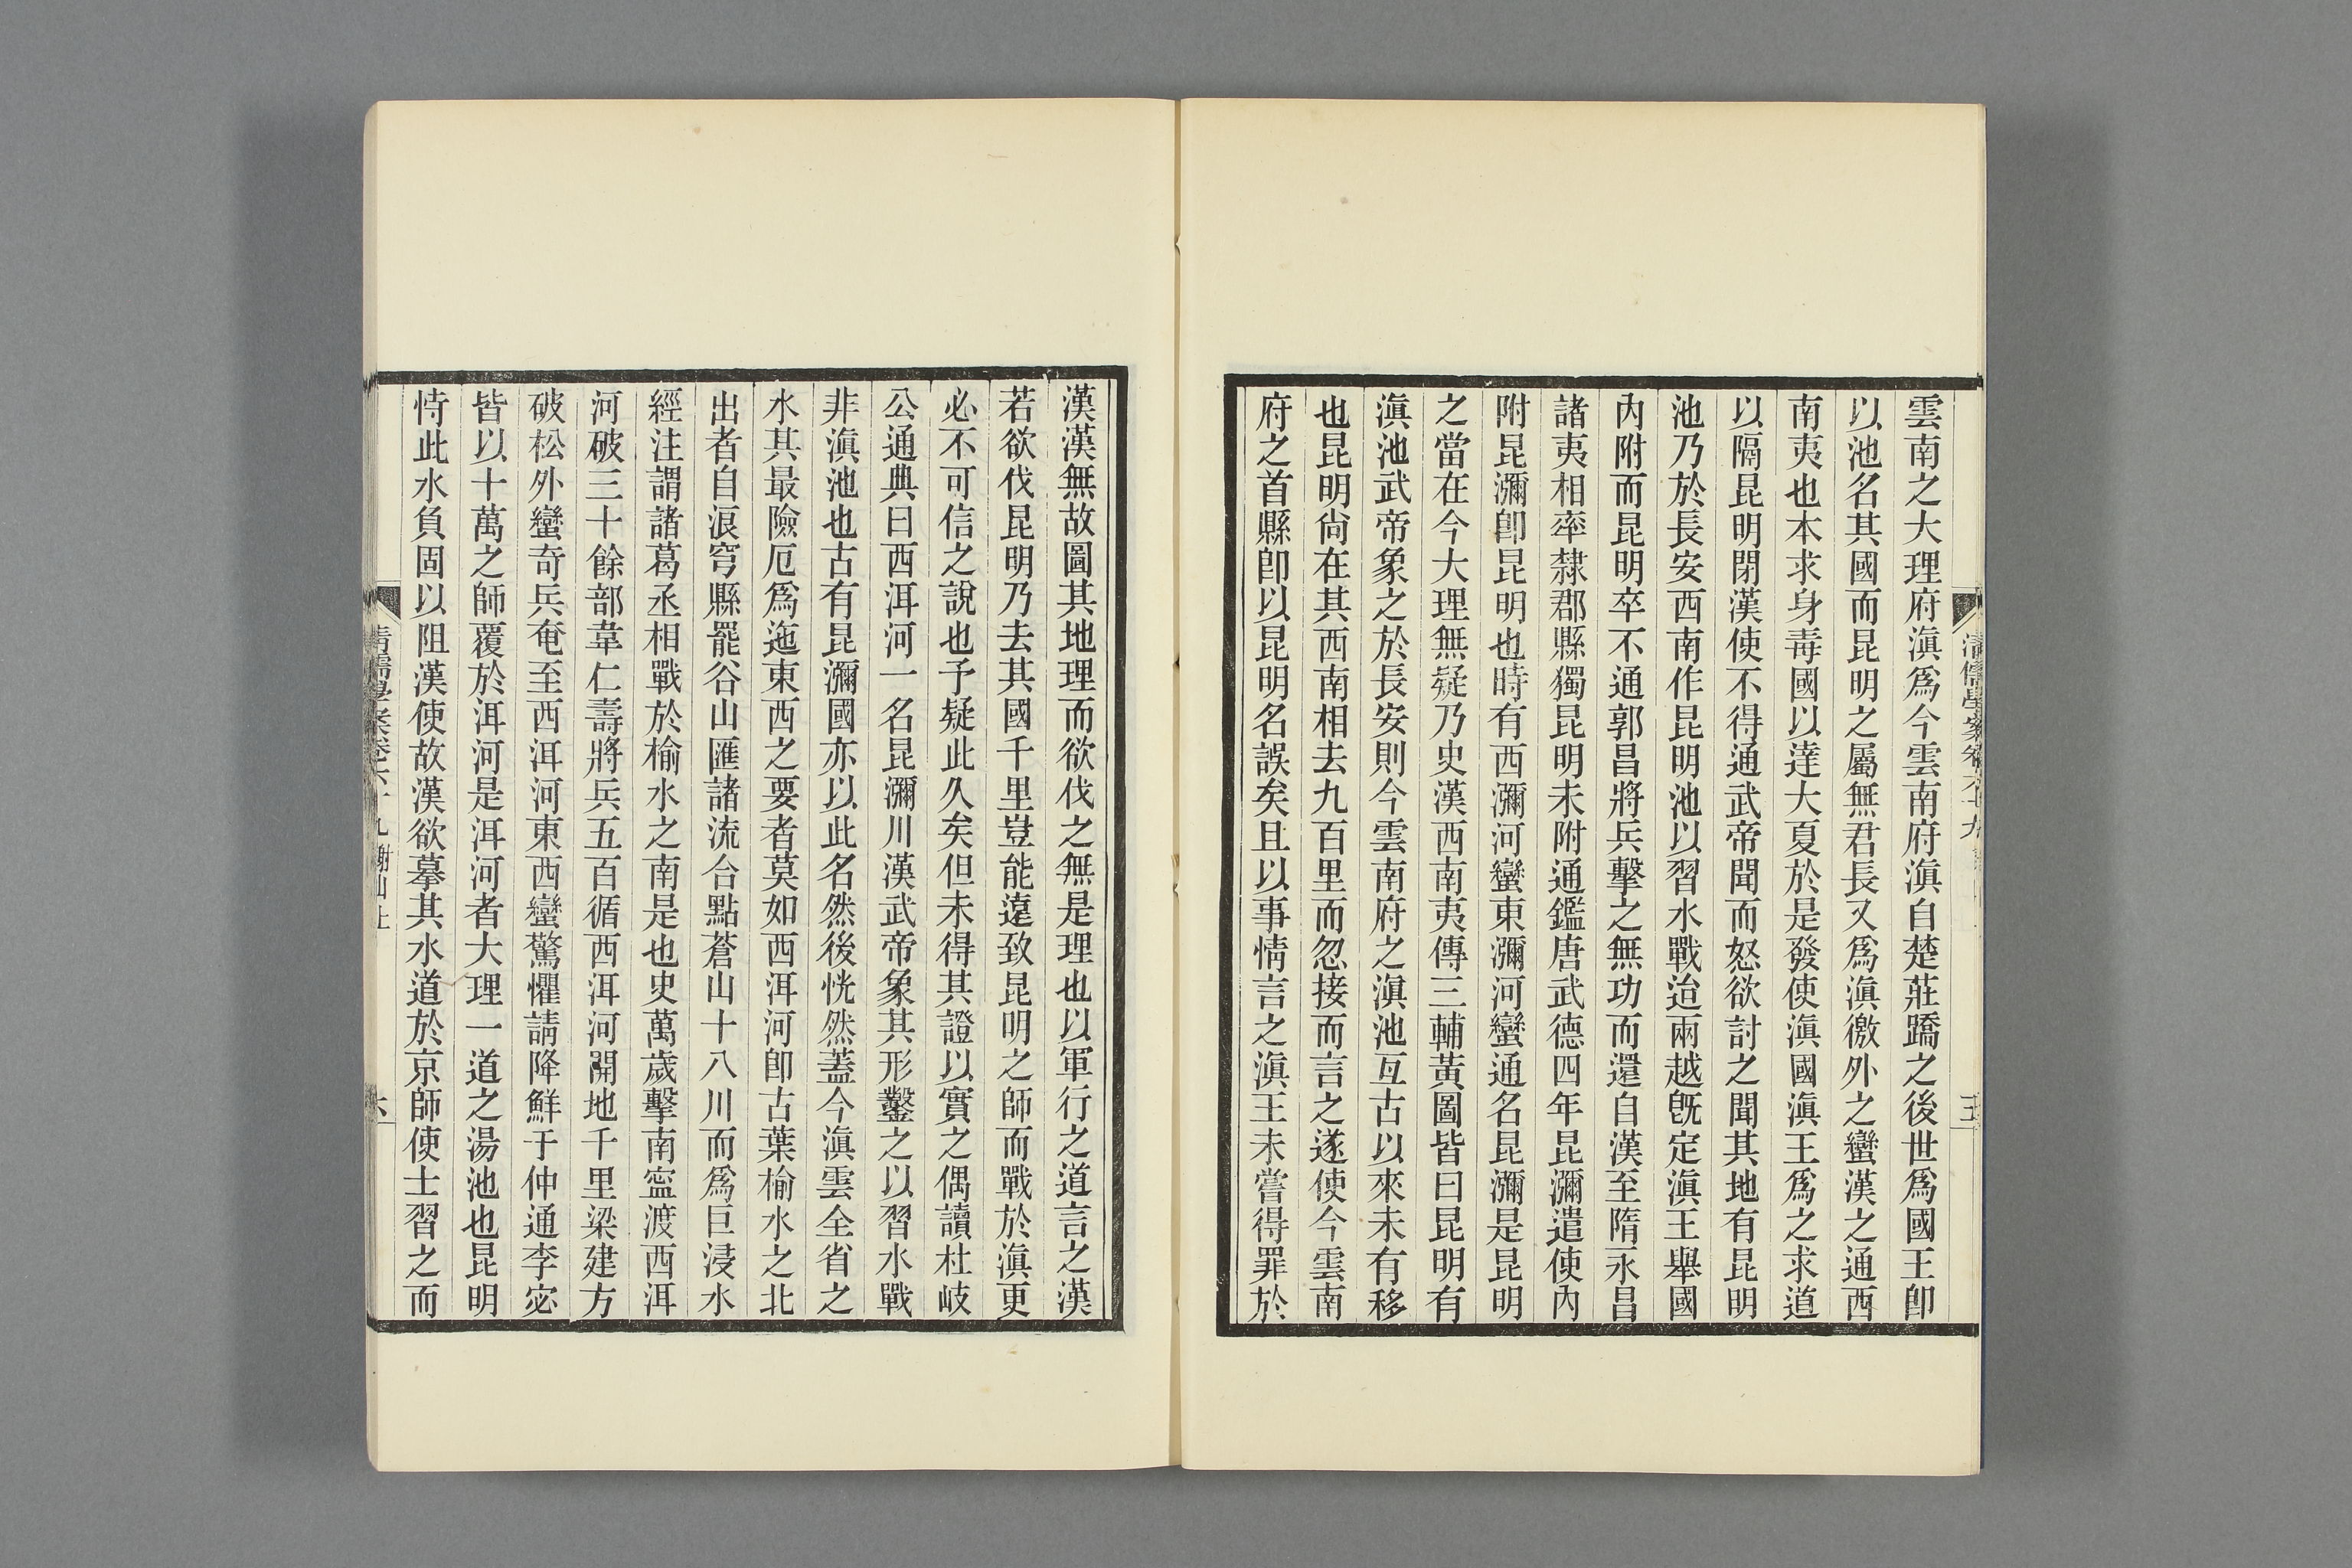 雲南之大理府滇爲今雲南府滇自楚莊蹻之後世爲國王卽
以池名其國而昆明之屬無君長又爲滇徼外之蠻漢之通西
南夷也本求身毒國以達大夏於是發使滇國滇王爲之求道
以隔昆明閉漢使不得通武帝聞而怒欲討之聞其地有昆明
池乃於長安西南作昆明池以習水戰迨兩越旣定滇王舉國
內附而昆明卒不通郭昌將兵擊之無功而還自漢至隋永昌
諸夷相率隸郡縣獨昆明未附通鑑唐武德四年昆瀰遣使內
附昆瀰卽昆明也時有西瀰河蠻東瀰河蠻通名昆瀰是昆明
之當在今大理無疑乃史漢西南夷傳三輔黃圖皆曰昆明有
滇池武帝象之於長安則今雲南府之滇池亙古以來未有移
也昆明尙在其西南相去九百里而忽接而言之遂使今雲南
府之首縣卽以昆明名誤矣且以事情言之滇王未嘗得罪於
漢漢無故圖其地理而欲伐之無是理也以軍行之道言之漢
若欲伐昆明乃去其國千里豈能遠致昆明之師而戰於滇更
必不可信之說也予疑此久矣但未得其證以實之偶讀杜岐
公通典曰西洱河一名昆瀰川漢武帝象其形鑿之以習水戰
非滇池也古有昆瀰國亦以此名然後恍然蓋今滇雲全省之
水其最險厄爲迤東西之要者莫如西洱河卽古葉榆水之北
出者自浪穹縣罷谷山匯諸流合點蒼山十八川而爲巨浸水
經注謂諸葛丞相戰於榆水之南是也史萬歲擊南寧渡西洱
河破三十餘部韋仁壽將兵五百循西洱河開地千里梁建方
破松外蠻奇兵奄至西洱河東西蠻驚懼請降鮮于仲通李宓
皆以十萬之師覆於洱河是洱河者大理一道之湯池也昆明
恃此水負固以阻漢使故漢欲摹其水道於京師使士習之而
清儒學案卷六十九 謝山上
六